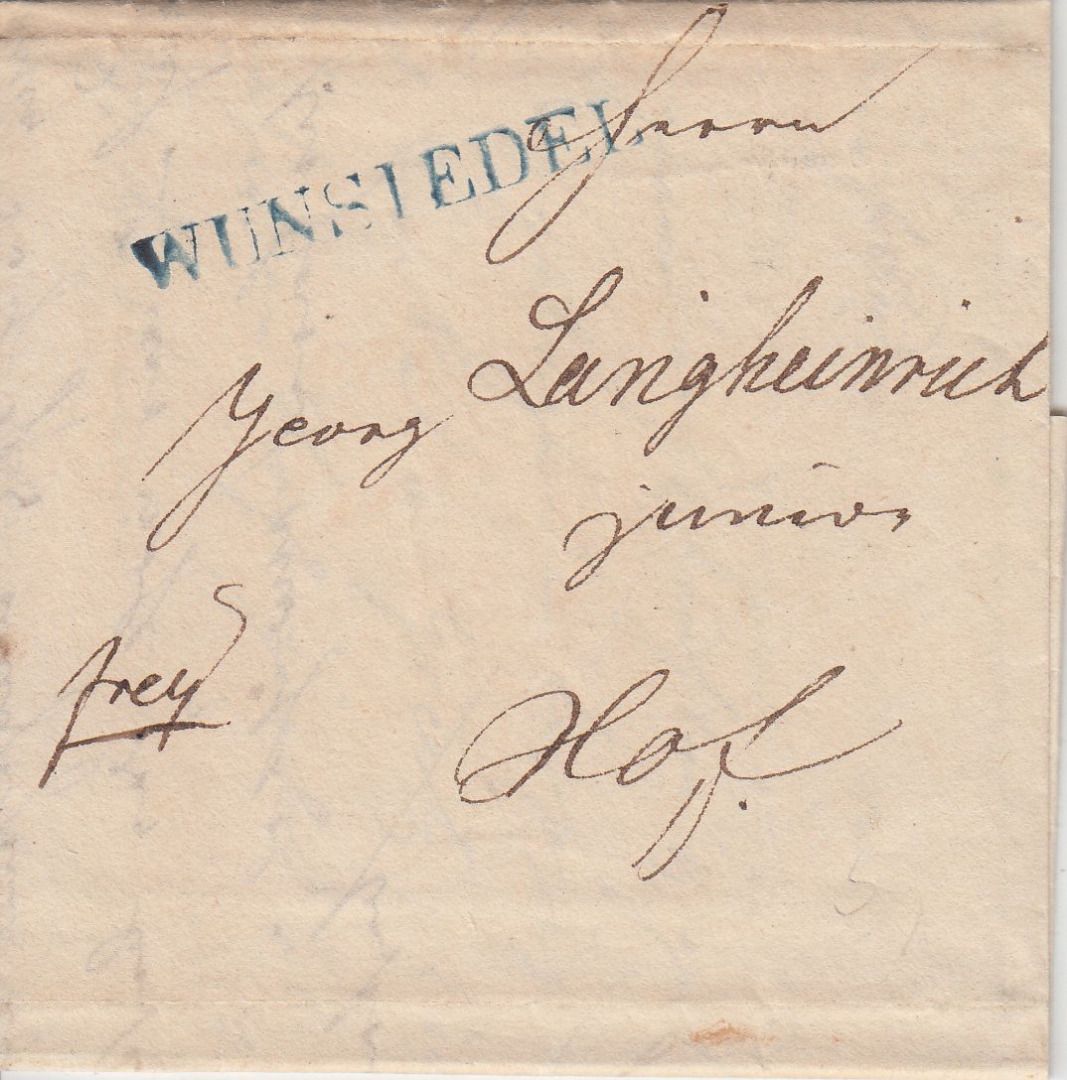 WUNSIEDEL
Herrn
Georg Langheinrich
junior
frey
Hof.